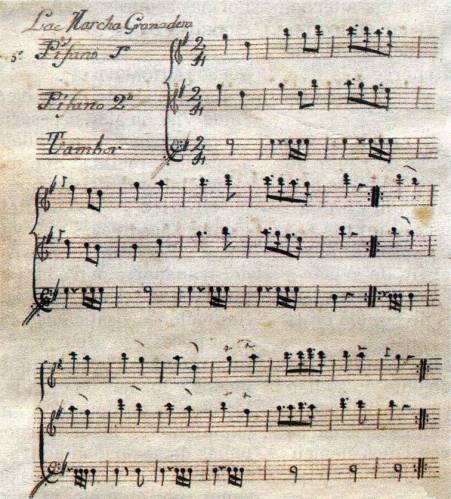 La Marcha Granadera
Pifano 1º
Pifano 2º
Tambor